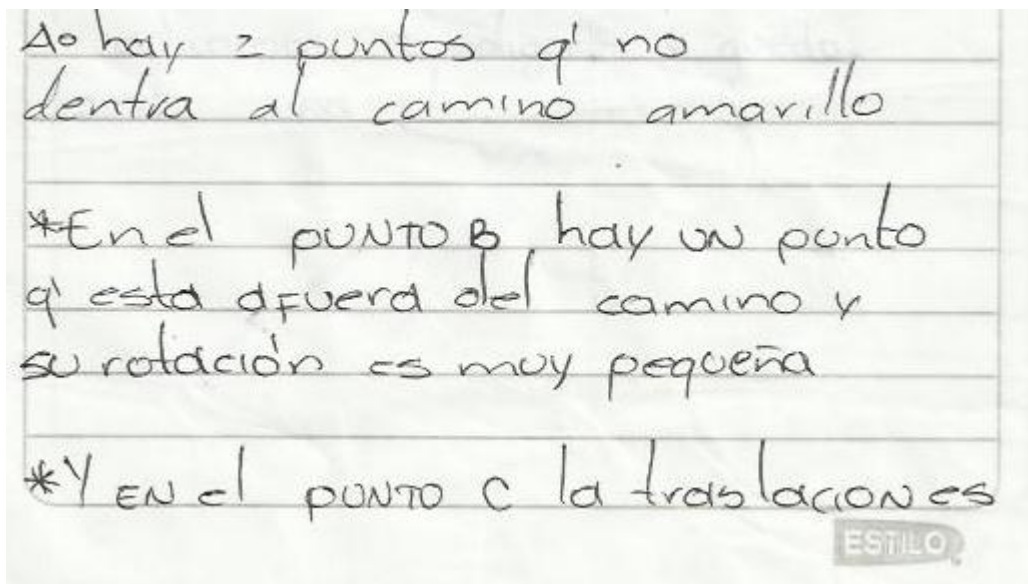 A• hay 2 puntos q' no
dentra al camino amarillo
*En el PUNTO B hay UN punto
q' esta afuera del camino y
su rotación es muy pequeña
*Y EN el PUNTO C la traslacion es
ESTILO